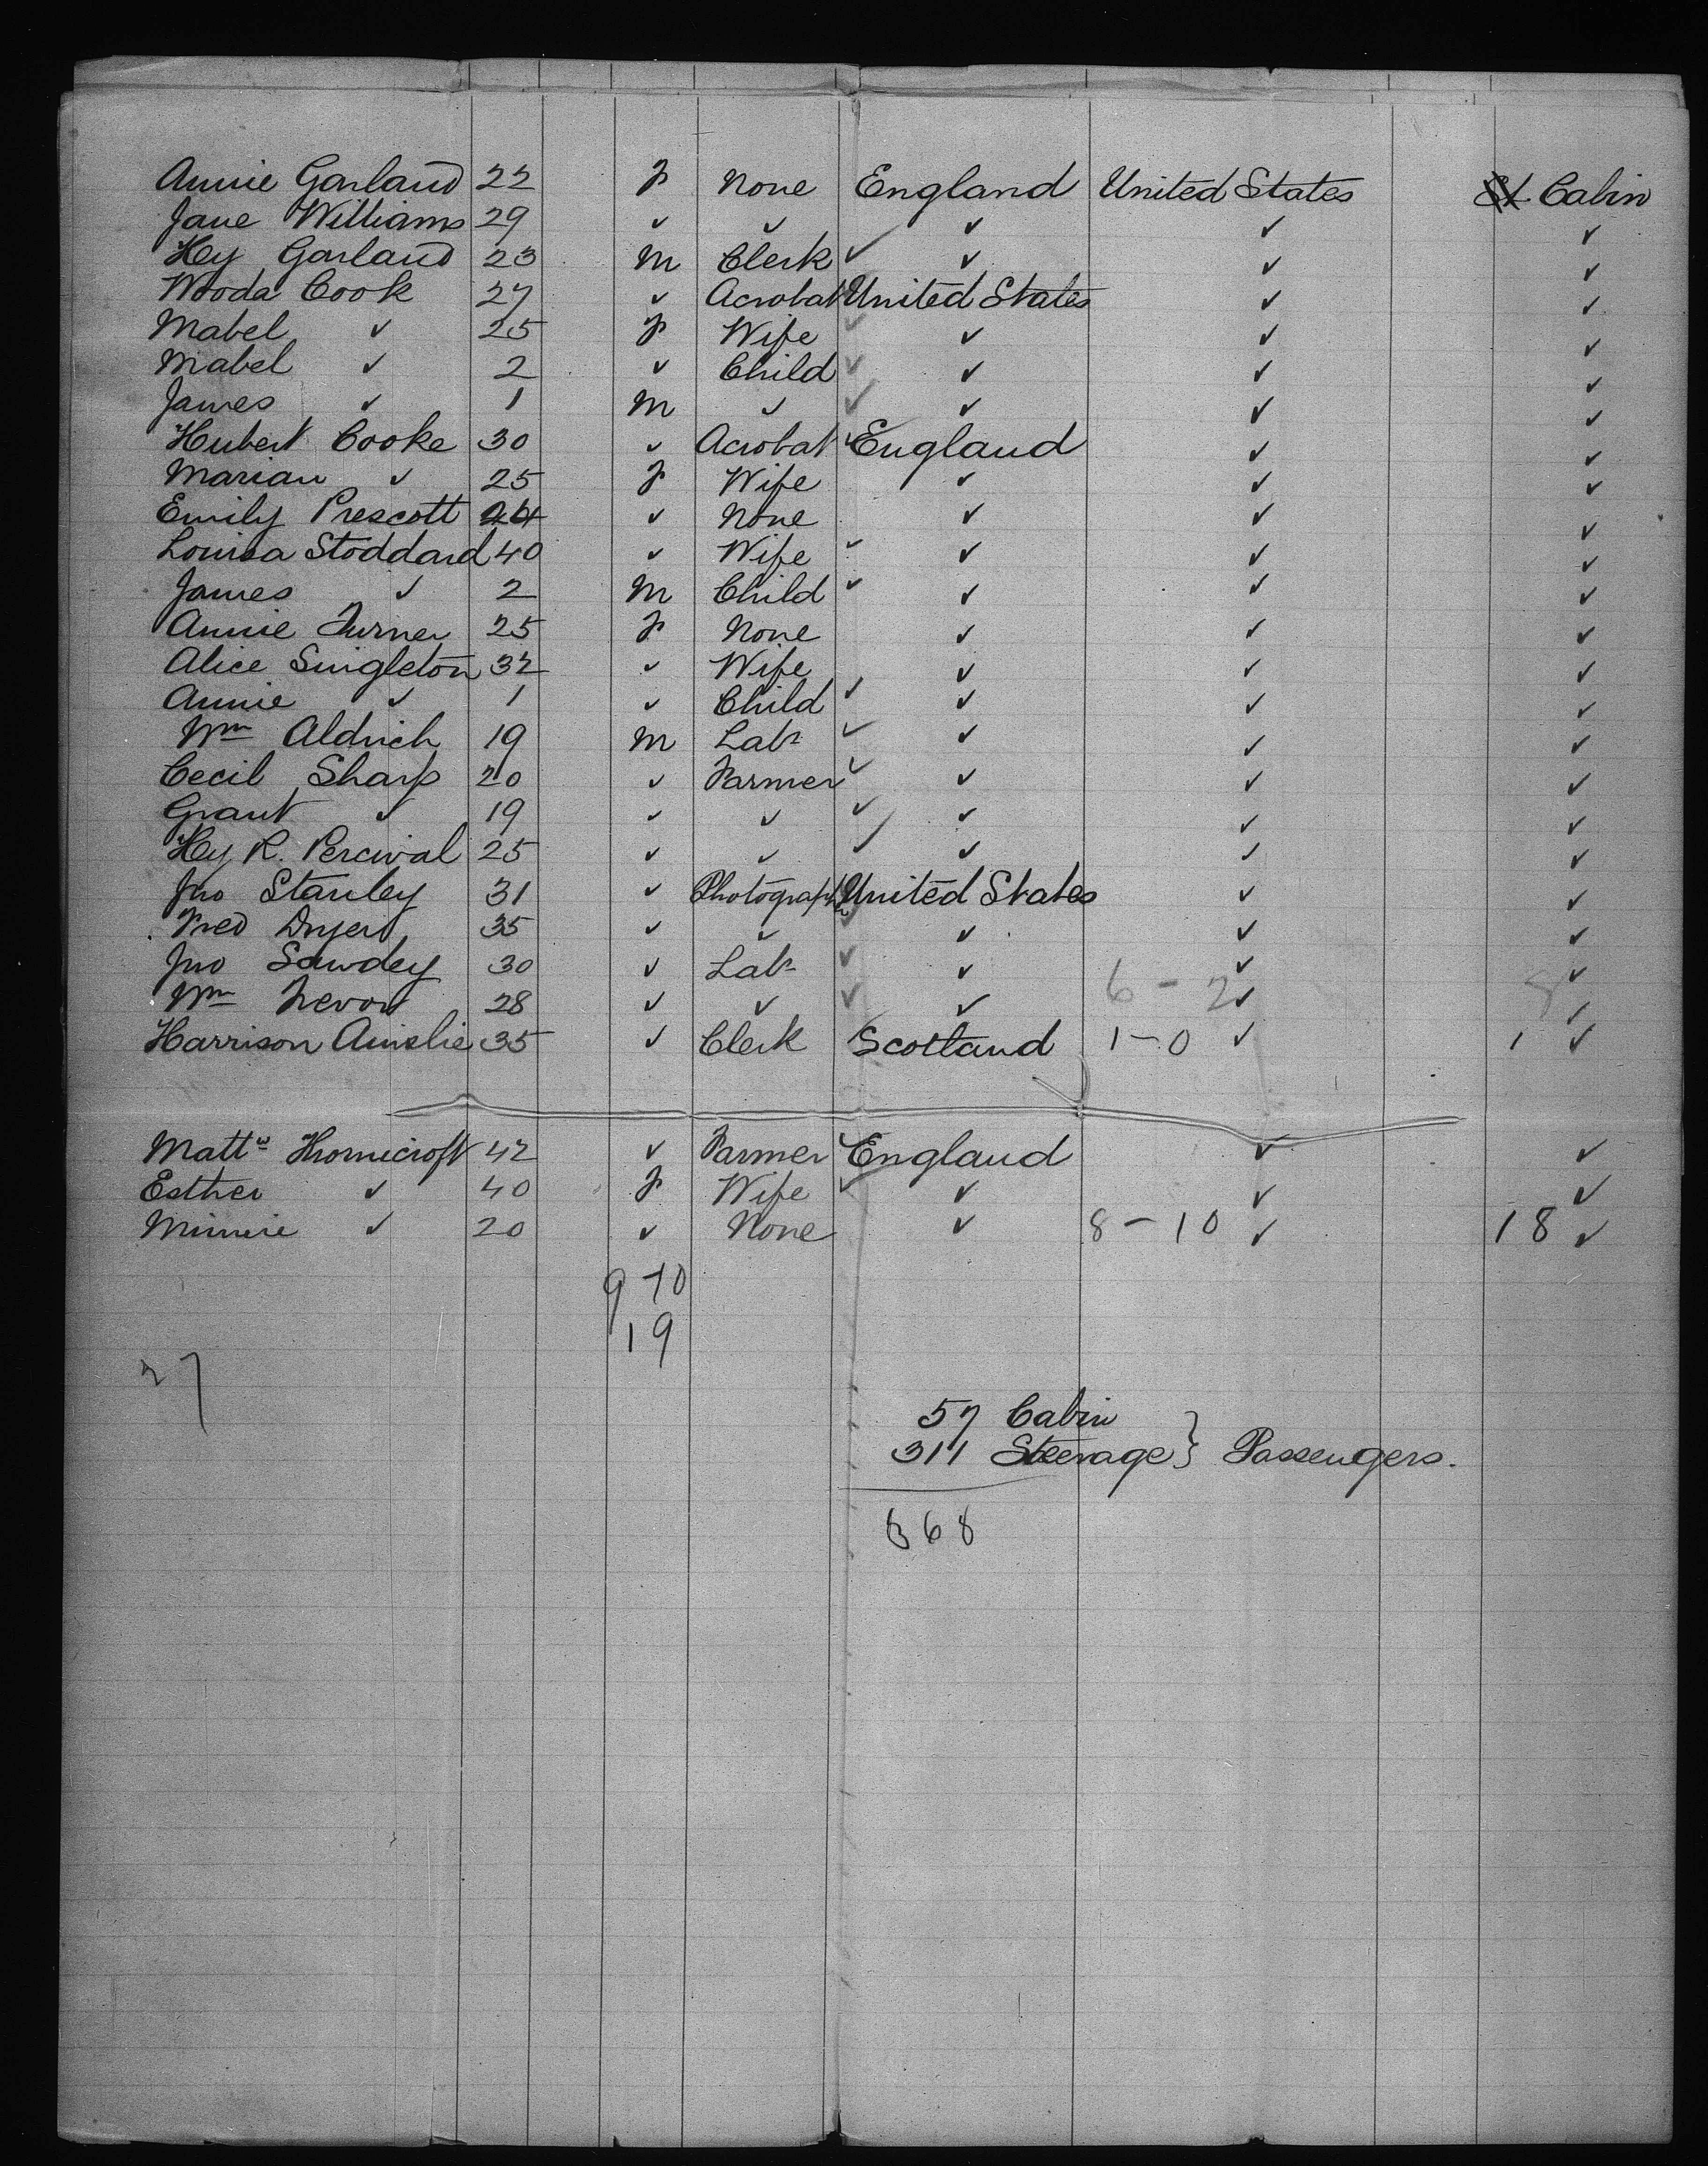 Annie Garland 22 F None England United States St Cabin
Jane Williams 29 ✓ ✓ ✓ ✓ ✓
Hy Garland 23 M Clerk ✓ ✓ ✓ ✓
Wooda Cook 27 ✓ Acrobat United States ✓ ✓
Mabel ✓ 25 F Wife ✓ ✓ ✓ ✓
Mabel ✓ 2 ✓ Child ✓ ✓ ✓ ✓
James ✓ 1 M ✓ ✓ ✓ ✓ ✓
Hubert Cooke 30 ✓ Acrobat ✓ England ✓ ✓
Marian ✓ 25 F Wife ✓ ✓ ✓
Emily Prescott 24 ✓ None ✓ ✓ ✓
Louisa Stoddard 40 ✓ Wife ✓ ✓ ✓ ✓
James ✓ 2 M Child ✓ ✓ ✓ ✓
Annie Turner 25 F None ✓ ✓ ✓
Alice Singleton 32 ✓ Wife ✓ ✓ ✓
Annie ✓ 1 ✓ Child ✓ ✓ ✓ ✓
Wm Aldrich 19 M Labr ✓ ✓ ✓ ✓
Cecil Sharp 20 ✓ Farmer ✓ ✓ ✓ ✓
Grant ✓ 19 ✓ ✓ ✓ ✓ ✓ ✓
Hy R. Percival 25 ✓ ✓ ✓ ✓ ✓ ✓
Jno Stanley 31 ✓ Photographr United States ✓ ✓
Fred Dyer 35 ✓ ✓ ✓ ✓ ✓ ✓
Jno Sawdey 30 ✓ Labr ✓ ✓ ✓ ✓
Wm Trevor 28 ✓ ✓ ✓ ✓ 6-2 ✓ 8 ✓
Harrison Ainslie 35 ✓ Clerk Scotland 1-0 ✓ 1 ✓
Mattw Thornicroft 42 ✓ Farmer ✓ England ✓ ✓
Esther ✓ 40 F Wife ✓ ✓ ✓ ✓
Minnie ✓ 20 ✓ None ✓ 8-10 ✓ 18 ✓
9-10
19
27
57 Cabin
311 Steerage } Passengers.
368